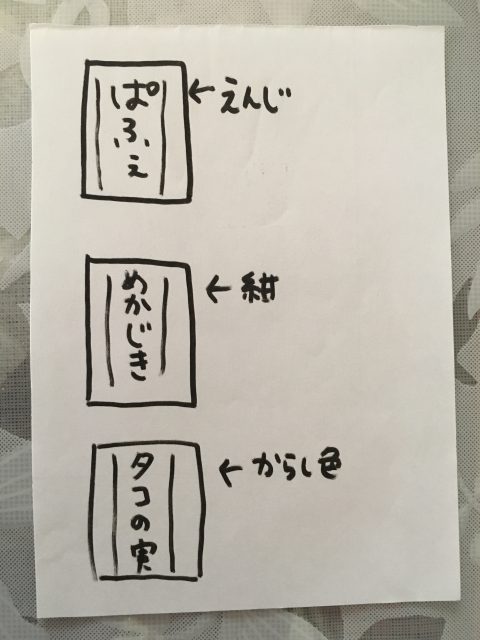 ぱふぇ
←えんじ
めかじき
←紺
タコの実
←からし色